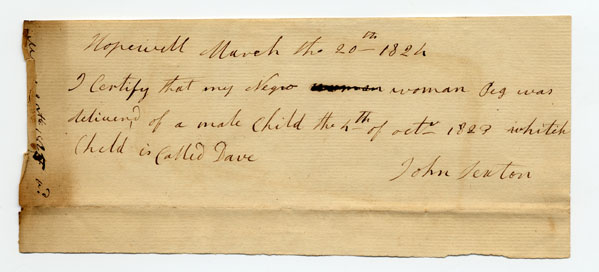 Hopewell March the 20th 1824
I Certify that my Negro woman Peg was
delivered of a male Child the 4th of octr 1823 whitch
Child is Called Dave
John Sexton